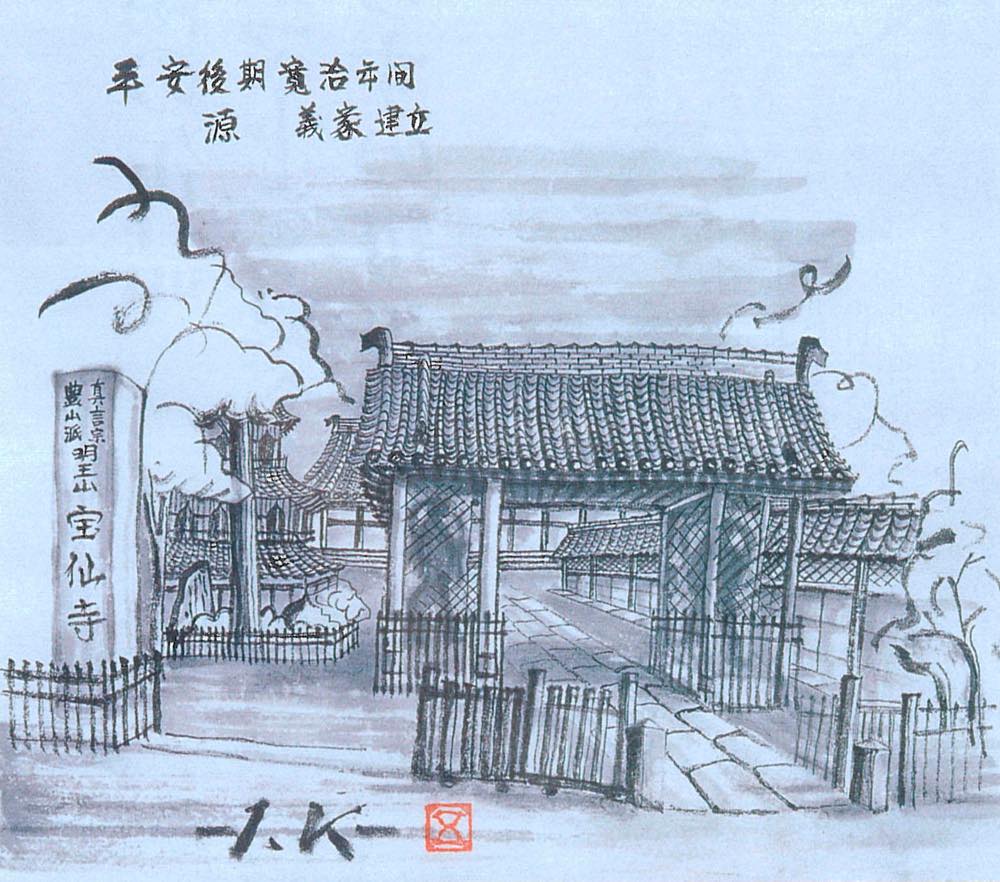 平安後期寛治年间
源 義家建立
真言宗
豊山派
明王山
宝仙寺
I.K